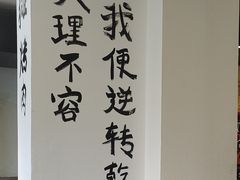 天理不容
我便逆转乾